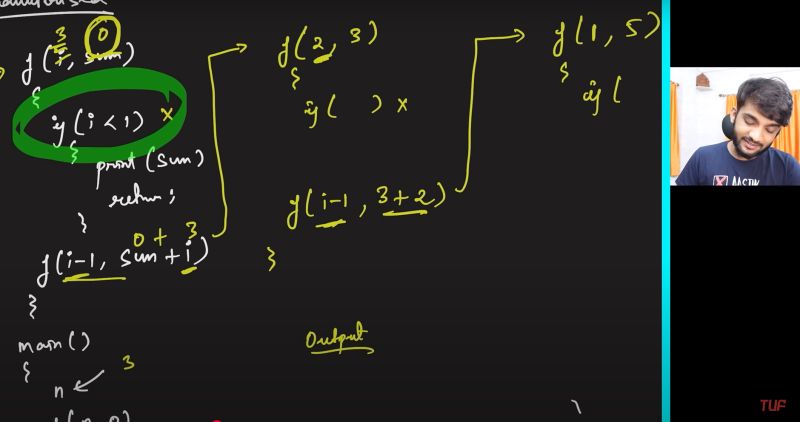 3 0
f(i, sum)
{
if(i < 1) x
{
print(sum)
return;
}
0 + 3
f(i-1, sum + i)
}
main()
{
n 3
f(2, 3)
{
if( ) x
f(i-1, 3+2)
}
Output
f(1, 5)
{
if(
TUF